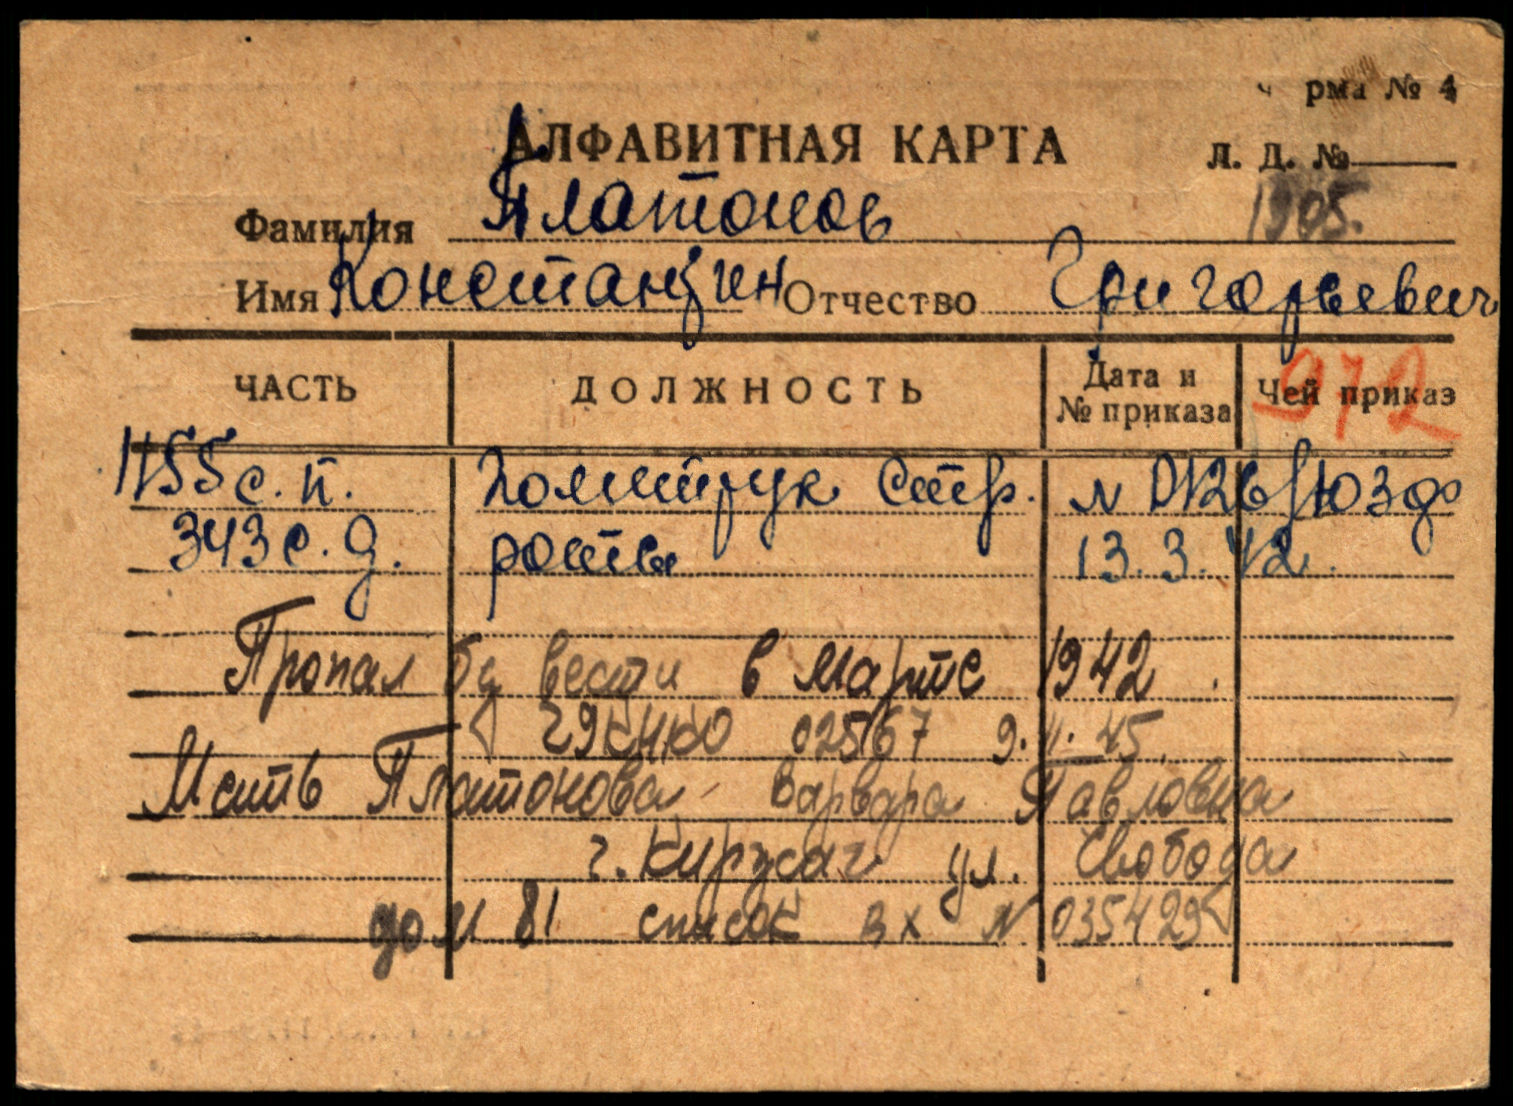 рма № 4
АЛФАВИТНАЯ КАРТА
Л. Д. №
1905.
Фамилия Платонов
Имя Константин Отчество Григорьевич
ЧАСТЬ ДОЛЖНОСТЬ Дата и № приказа Чей приказ
972
1155 с. п. Политрук стр. № 0126/ЮЗФ
343 с. д. роты 13. 3. 42.
Пропал без вести в марте 1942.
02567 9. 45
Мать Платонова Варвара Павловна
г. Киржач ул. Свобода
дом 81 список вх № 035429